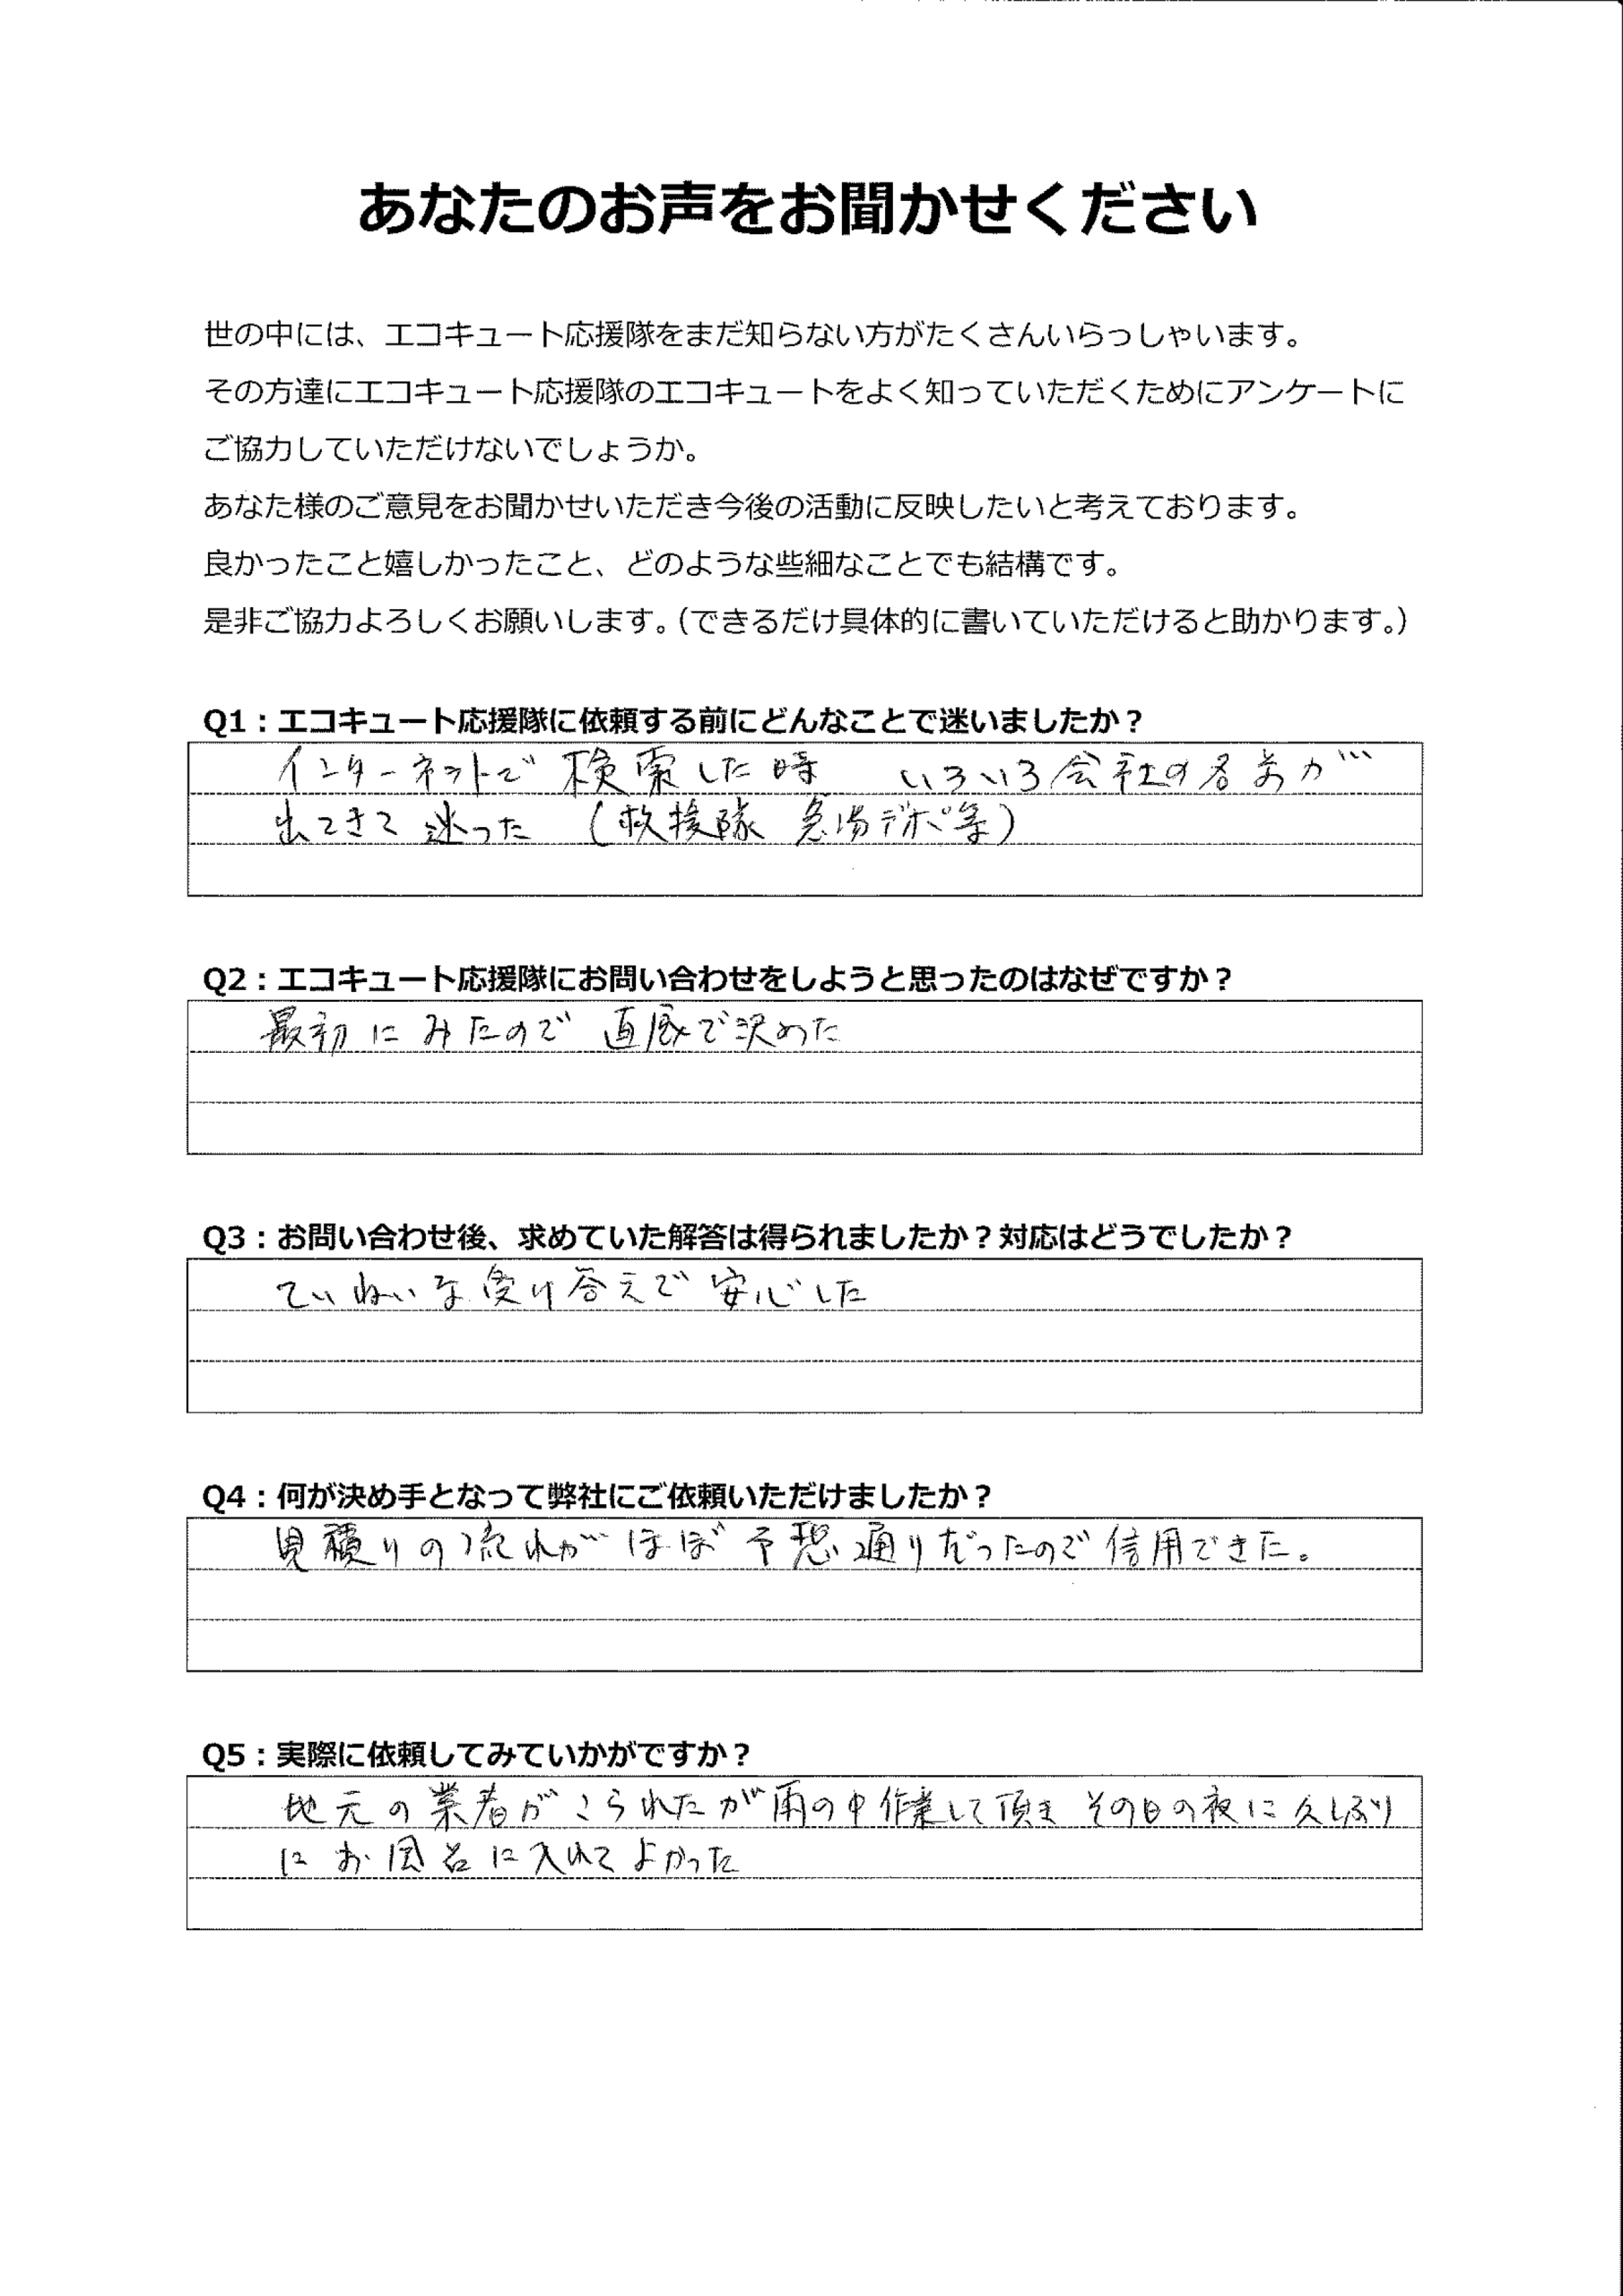 あなたのお声をお聞かせください
世の中には、エコキュート応援隊をまだ知らない方がたくさんいらっしゃいます。
その方達にエコキュート応援隊のエコキュートをよく知っていただくためにアンケートに
ご協力していただけないでしょうか。
あなた様のご意見をお聞かせいただき今後の活動に反映したいと考えております。
良かったこと嬉しかったこと、どのような些細なことでも結構です。
是非ご協力よろしくお願いします。（できるだけ具体的に書いていただけると助かります。）
Q1：エコキュート応援隊に依頼する前にどんなことで迷いましたか？
インターネットで 検索した時 いろいろ会社の名まが
出てきて 迷った （救援隊 急湯デポ等）
Q2：エコキュート応援隊にお問い合わせをしようと思ったのはなぜですか？
最初に みたので 直感で決めた
Q3：お問い合わせ後、求めていた解答は得られましたか？対応はどうでしたか？
ていねいな受け答えで 安心した
Q4：何が決め手となって弊社にご依頼いただけましたか？
見積りの流れが ほぼ 予想通りだったので 信用できた。
Q5：実際に依頼してみていかがですか？
地元の業者がこられたが雨の中作業して頂き その日の夜に久しぶり
に お風呂に入れて よかった